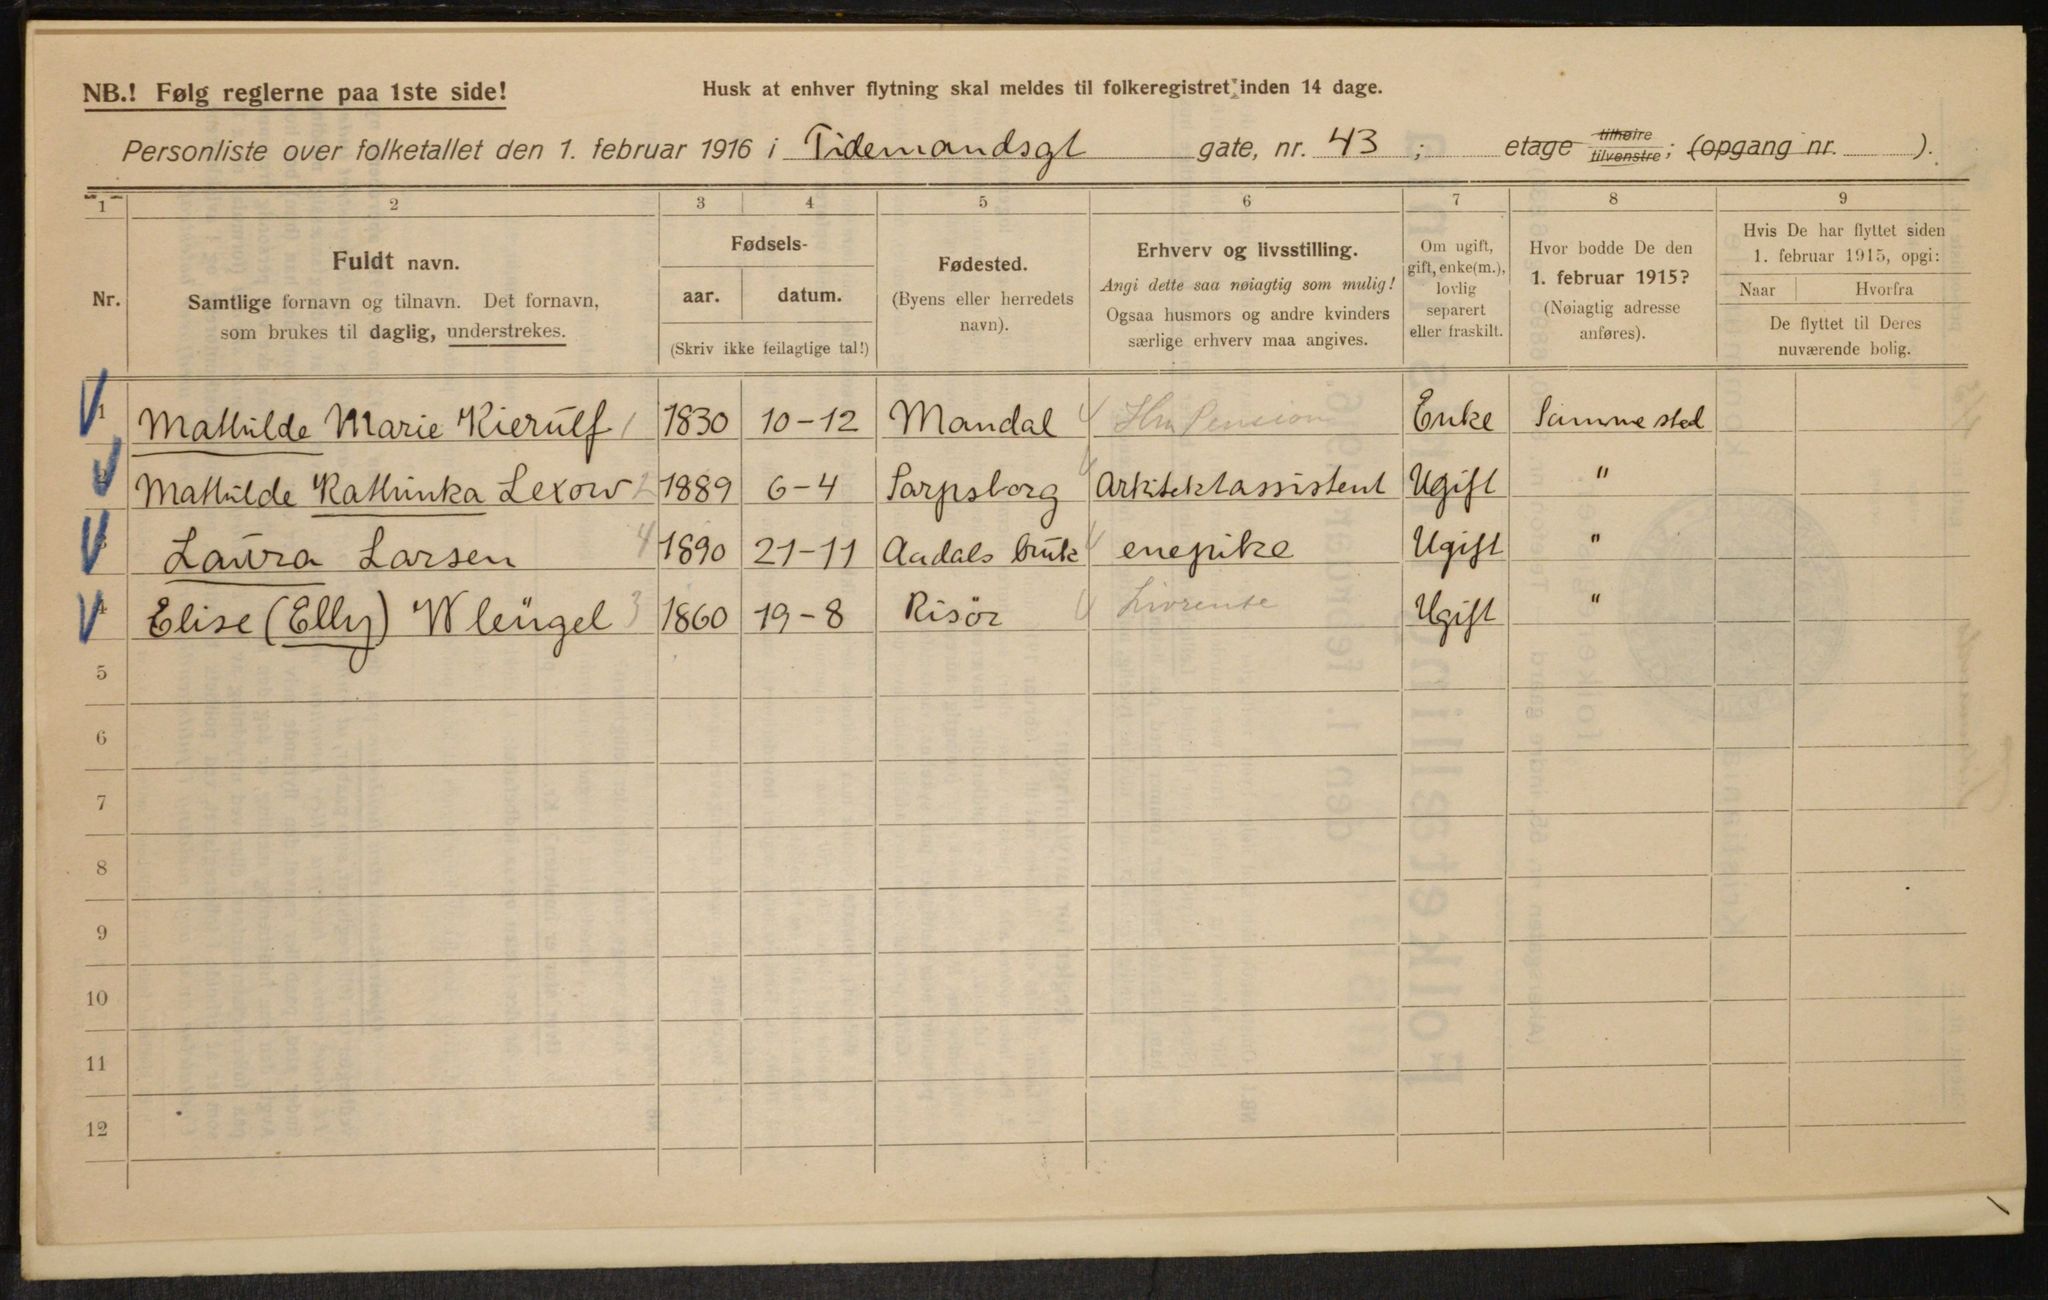 NB.! Følg reglerne paa 1ste side!
Husk at enhver flytning skal meldes til folkeregistret inden 14 dage.
Personliste over folketallet den 1. februar 1916 i Tidemandsgt gate, nr. 43 ; etage tilhøire tilvenstre ; (opgang nr. ).
1 2 3 4 5 6 7 8 9
Nr.
Fuldt navn.
Samtlige fornavn og tilnavn. Det fornavn,
som brukes til daglig, understrekes.
Fødsels-
aar. datum.
(Skriv ikke feilagtige tal!)
Fødested.
(Byens eller herredets
navn).
Erhverv og livsstilling.
Angi dette saa nøiagtig som mulig!
Ogsaa husmors og andre kvinders
særlige erhverv maa angives.
Om ugift,
gift, enke(m.),
lovlig
separert
eller fraskilt.
Hvor bodde De den
1. februar 1915?
(Nøiagtig adresse
anføres).
Hvis De har flyttet siden
1. februar 1915, opgi:
Naar Hvorfra
De flyttet til Deres
nuværende bolig.
1 Mathilde Marie Kierulf 1 1830 10-12 Mandal Pension Enke Samme sted
Mathilde Kathinka Lexow 2 1889 6-4 Sarpsborg Arkitektassistent Ugift "
Laura Larsen 4 1890 21-11 Aadals bruk enepike Ugift "
4 Elise (Elly) Wleügel 3 1860 19-8 Risör Livrente Ugift "
5
6
7
8
9
10
11
12